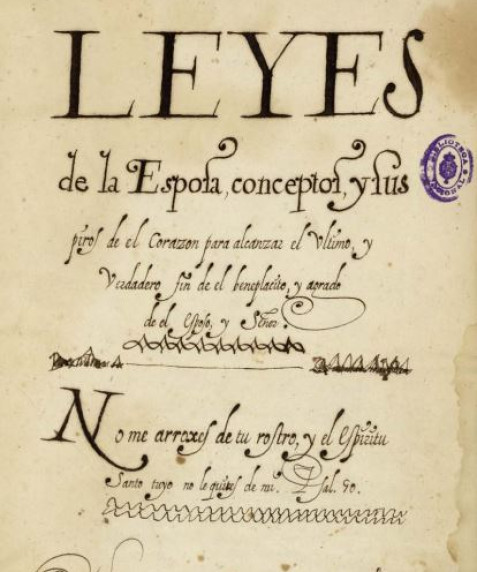 LEYES
de la Esposa, conceptos, y sus
piros de el Corazon para alcanzar el Vltimo, y
Verdadero fin de el beneplacito, y agrado
de el Esposo, y Señor.
No me arroxes de tu rostro, y el Espiritu
Santo tuyo no le quites de mi. Psal. 50.
BIBLIOTECA NACIONAL